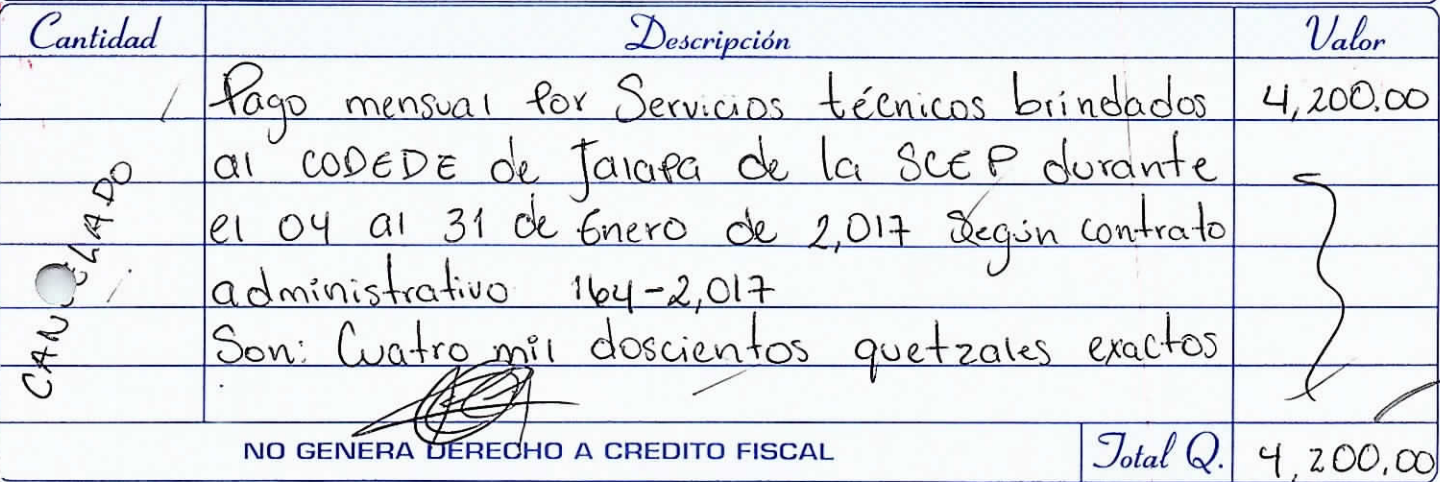 Cantidad Descripción Valor
Pago mensual por Servicios técnicos brindados 4,200.00
al CODEDE de Jalapa de la SCEP durante
el 04 al 31 de Enero de 2,017 Según contrato
administrativo 164-2,017
Son: Cuatro mil doscientos quetzales exactos
CANCELADO
NO GENERA DERECHO A CREDITO FISCAL Total Q. 4,200.00